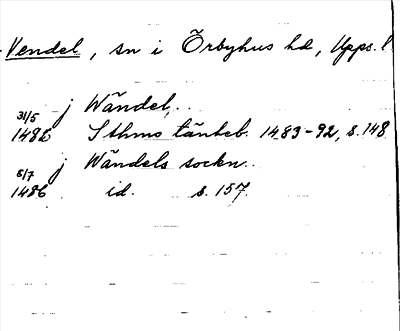 Vendel, sn i Örbyhus hd, Upps. l
j Wändel,..
31/5
1486 Sthms tänkeb. 1483-92, s. 148
j Wändels sockn..
8/7
1486 id. s. 157.